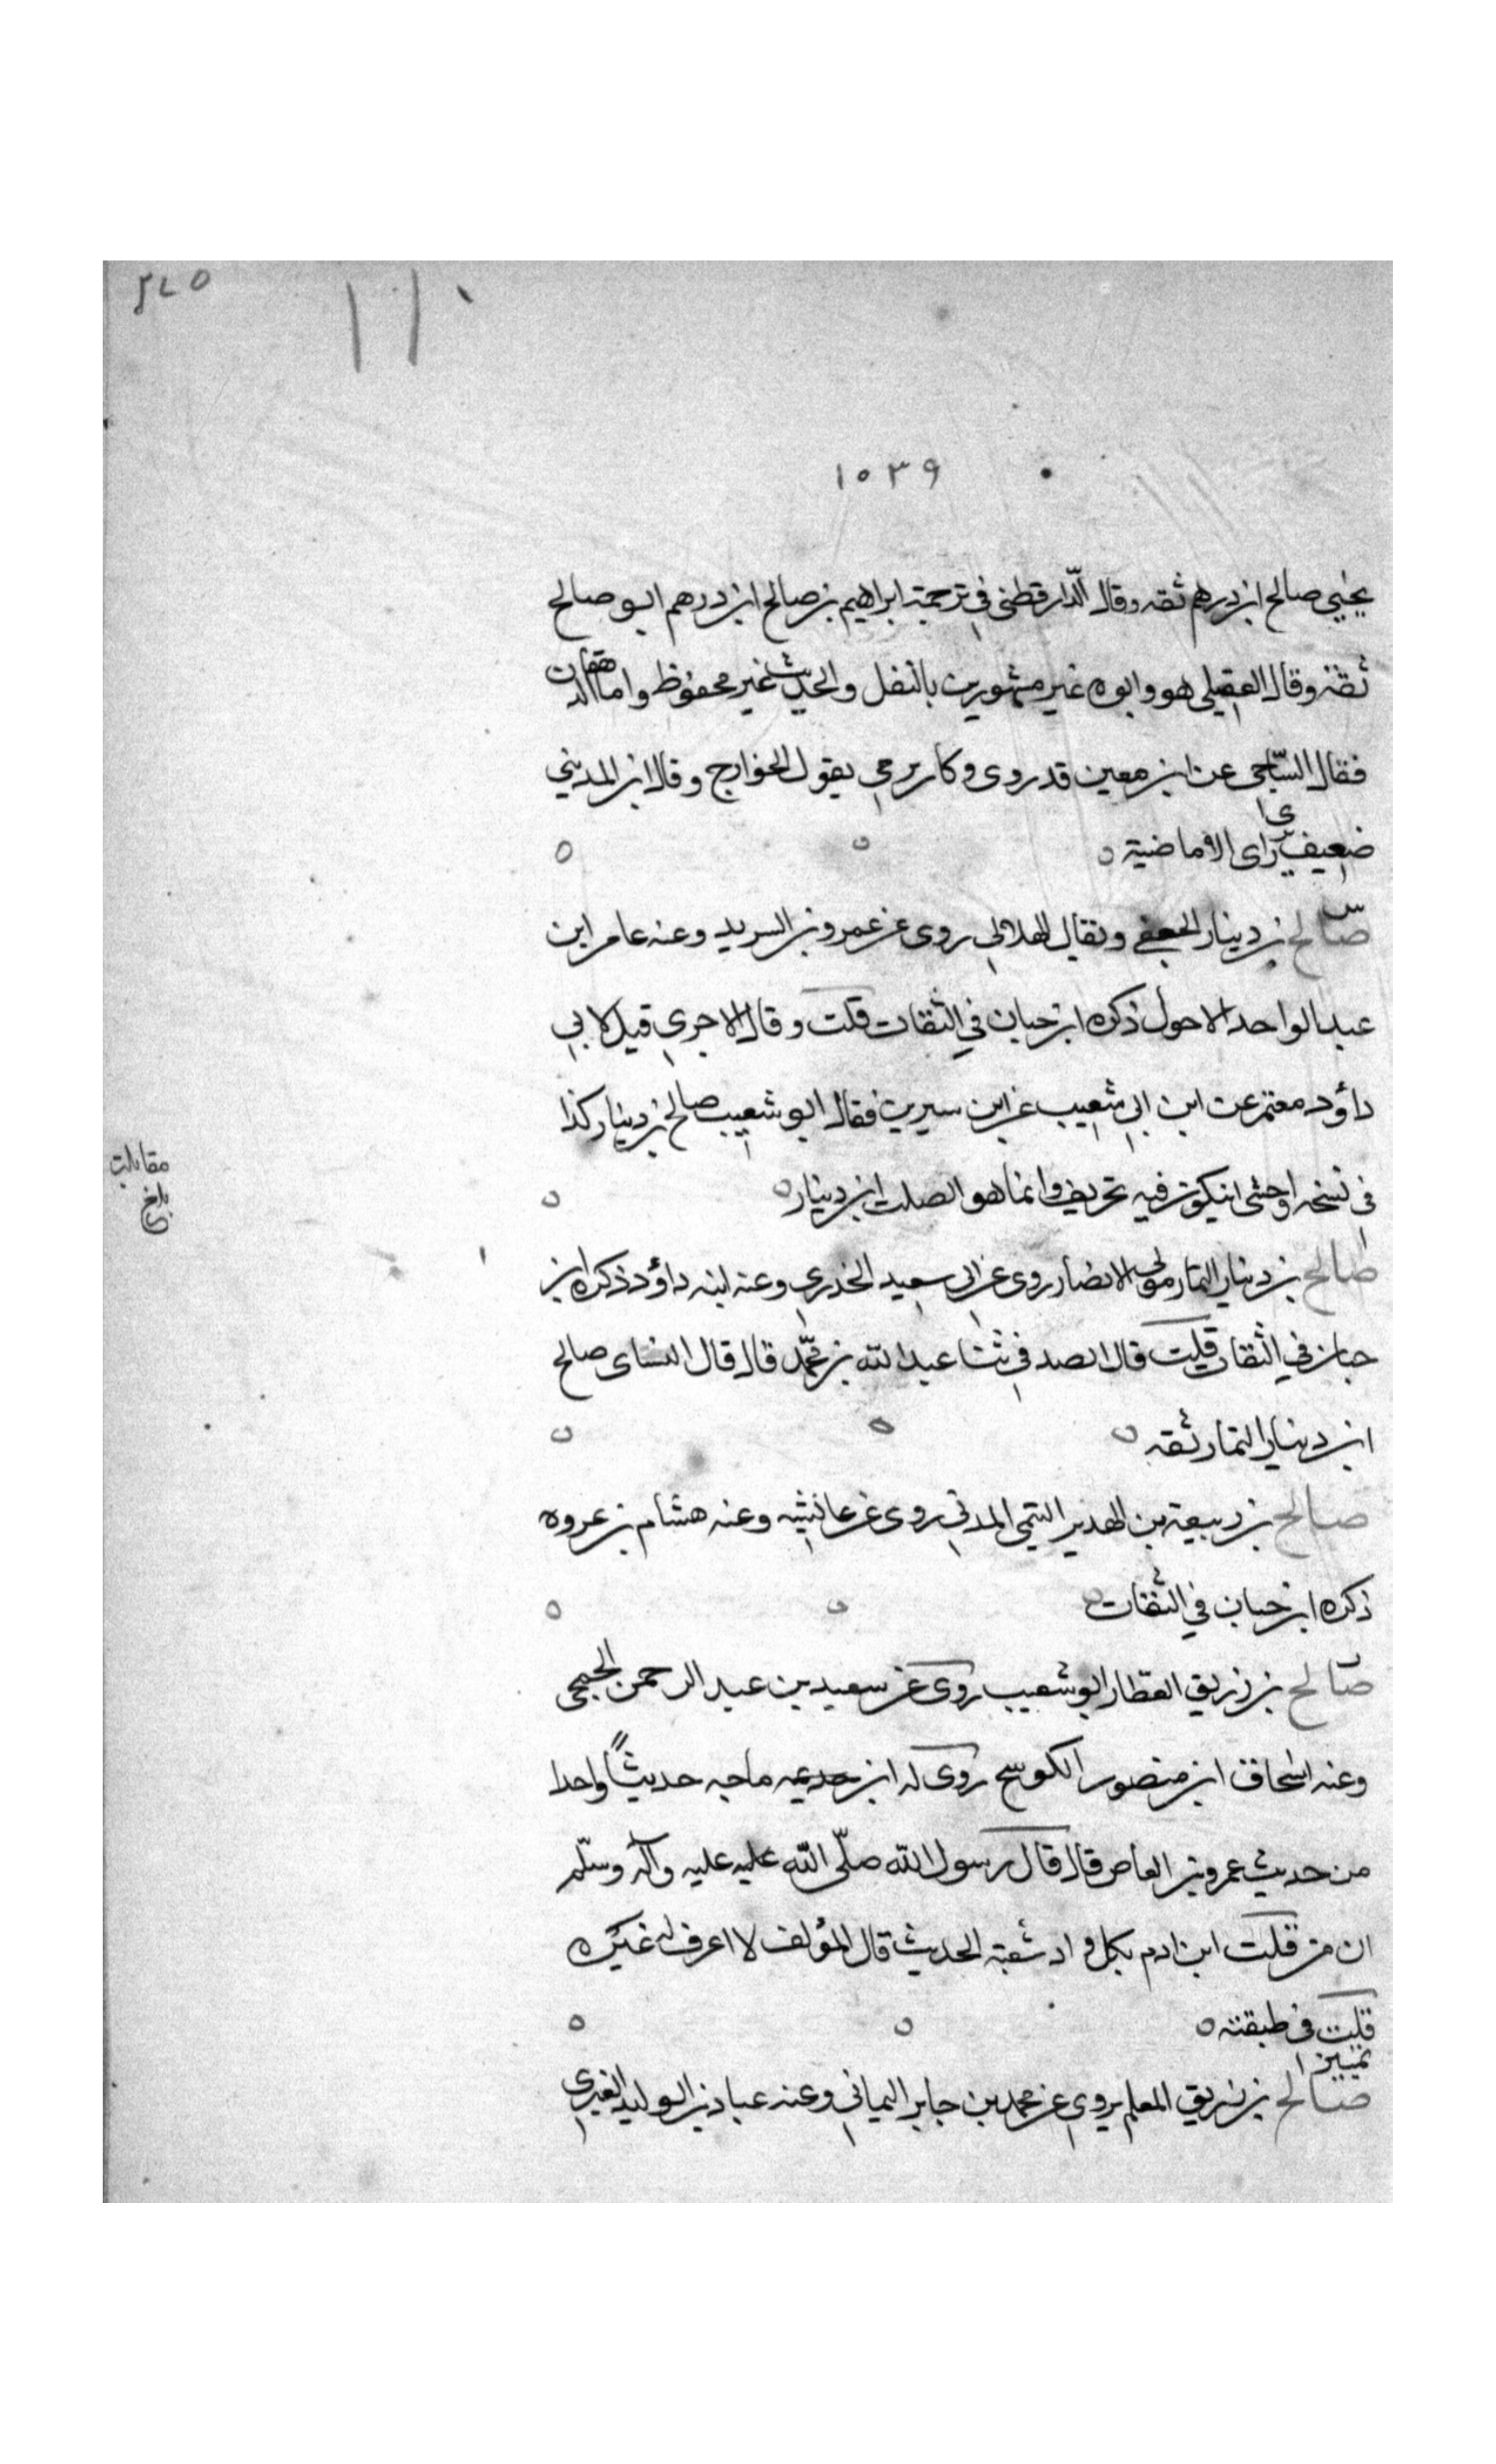 ١١٠
١٥٣٩
يحيى صالح ابن درهم ثقه وقال الدّارقطنى فى ترجمة ابراهيم بن صالح ابن درهم ابو صالح
ثقة وقال العقيلى هو وابوه غير مشهورين بالنقل والحديث غير محفوظ واما
فقال السّاجى عن ابن معين قد روى وكان يرمى بقول الخوارج وقال ابن المدينى
ضعيف يرى راى الاباضية
صالح بن دينار الجعفى ويقال الهلالى روى عن عمرو بن الشريد وعنه عامر ابن
عبد الواحد الاحول ذكره ابن حبان فى الثقات قلت وقال الاجرى قيل لابى
داؤد معتمر عن ابن ابى شعيب عن ابن سيرين فقال ابو شعيب صالح بن دينار كذا
فى نسخه واخشى ان يكون فيه تحريف وانما هو الصلت ابن دينار
صالح بن دينار التمار مولى الانصار روى عن ابى سعيد الخدرى وعنه ابنه داؤد ذكره ابن
حبان فى الثقات قلت قال الصدفى ثنا عبد الله بن محمّد قال قال النساى صالح
ابن دينار التمار ثقه
صالح بن ربيعة بن الهدير التيمى المدنى روى عن عائشه وعنه هشام بن عروه
ذكره ابن حبان فى الثقات
صالح بن زريق العطار ابو شعيب روى عن سعيد بن عبد الرحمن الجمحى
وعنه اسحاق ابن منصور الكوسج روى له ابن ماجه حديثاً واحدا
من حديث عمرو بن العاص قال قال رسول الله صلّى الله عليه عليه وآله وسلّم
ان من قلب ابن ادم بكل واد شعبة الحديث قال المؤلف لا اعرف له غيره
قلت فى طبقته
تمييز
صالح بن زريق المعلم يروى عن محمد بن جابر اليمانى وعنه عباد بن الوليد الغبرى
مقابلت
بلغ